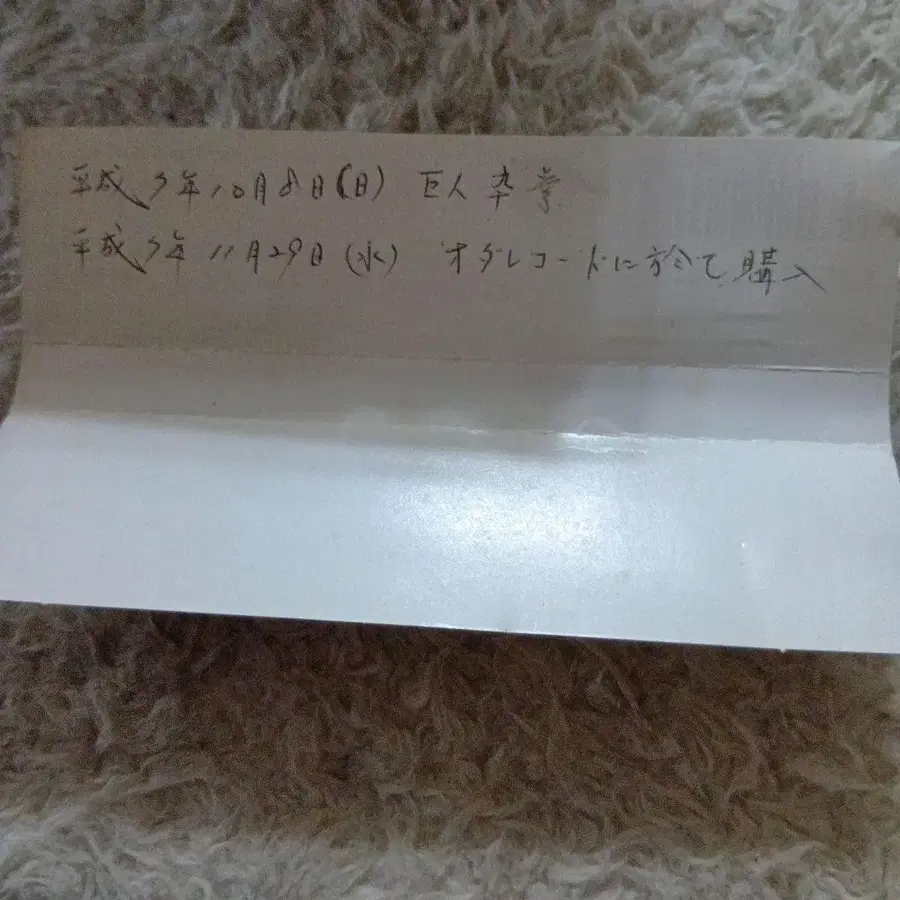 平成7年10月8日(日) 巨人
平成7年11月29日(水) オダレコードに於て購入